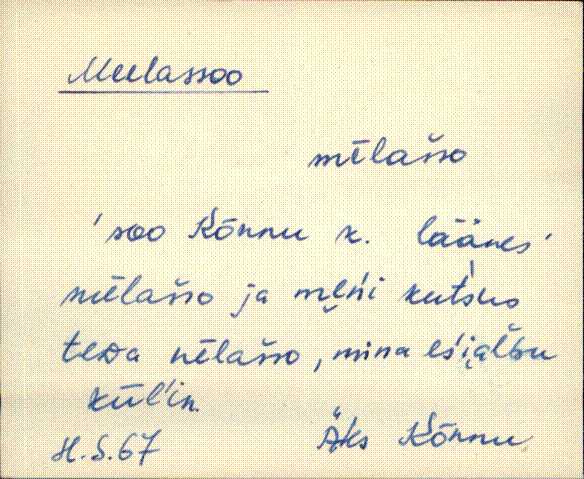 Meelassoo
mēlašso
'soo Kõnnu k. läänes'
mēlašso ja mȩńi kutsus
teDa mēlašso, mina eśi̯albu
kūĺin.
H.S.67 Äks Kõnnu